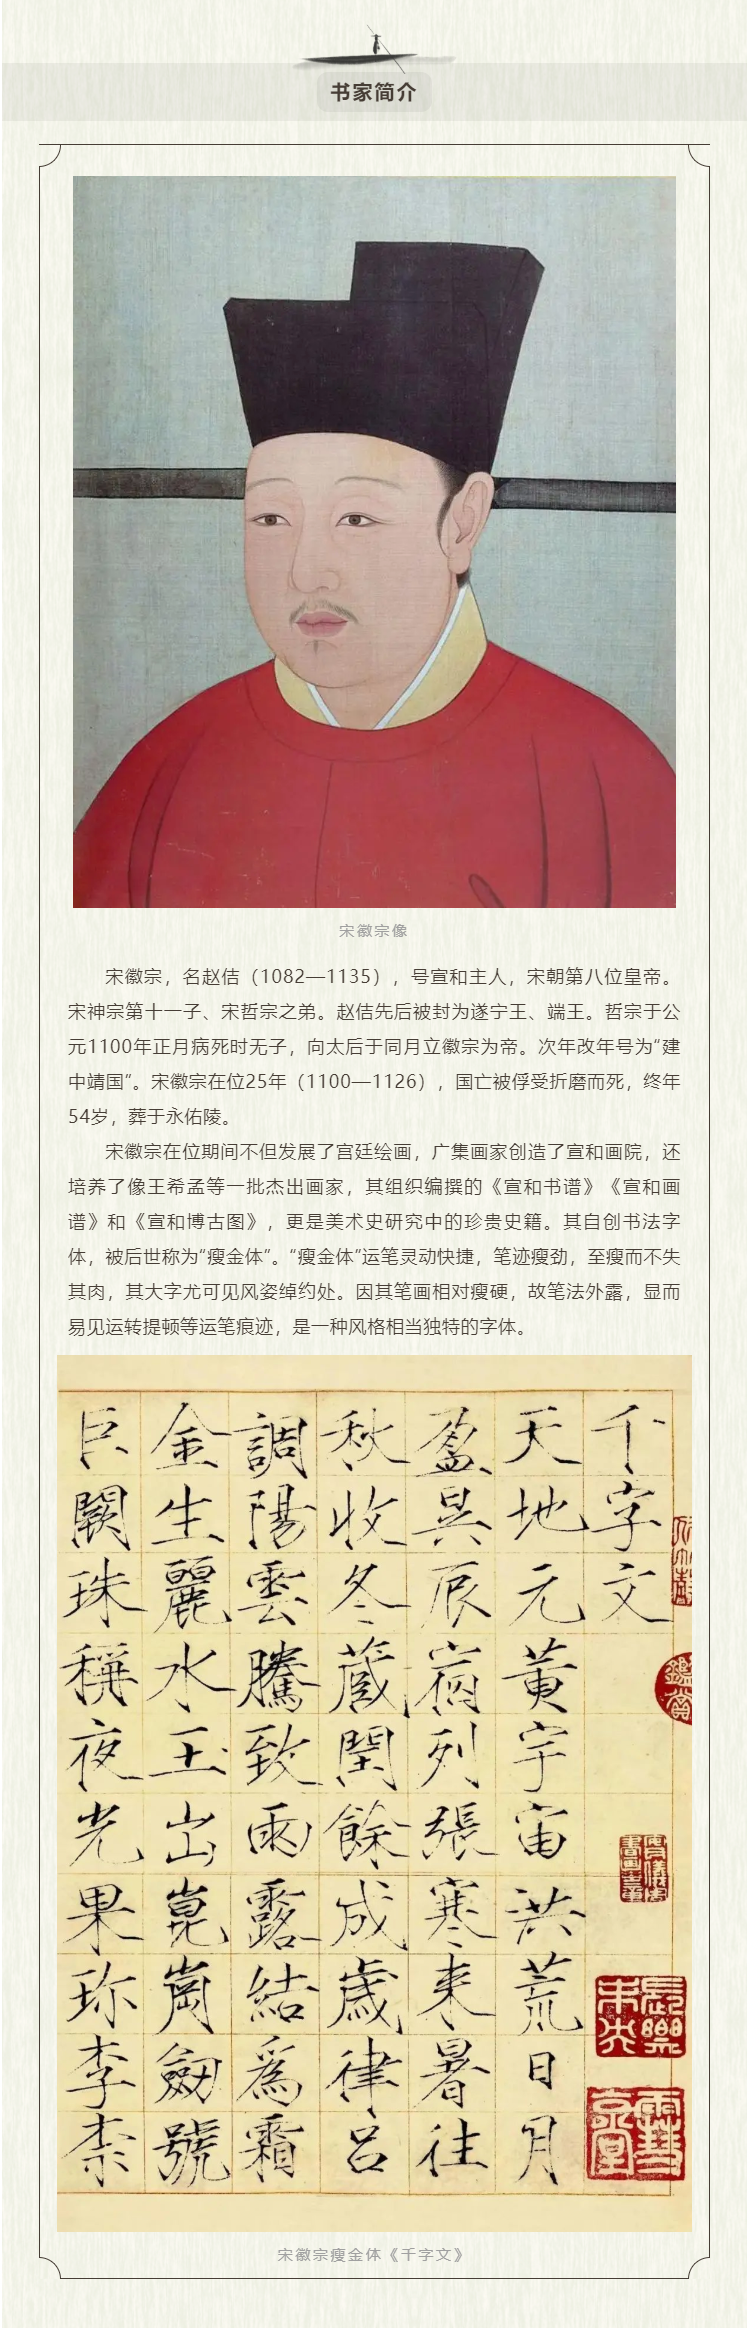 书家简介
宋徽宗像
宋徽宗，名赵佶（1082—1135），号宣和主人，宋朝第八位皇帝。
宋神宗第十一子、宋哲宗之弟。赵佶先后被封为遂宁王、端王。哲宗于公
元1100年正月病死时无子，向太后于同月立徽宗为帝。次年改年号为“建
中靖国”。宋徽宗在位25年（1100—1126），国亡被俘受折磨而死，终年
54岁，葬于永佑陵。
宋徽宗在位期间不但发展了宫廷绘画，广集画家创造了宣和画院，还
培养了像王希孟等一批杰出画家，其组织编撰的《宣和书谱》《宣和画
谱》和《宣和博古图》，更是美术史研究中的珍贵史籍。其自创书法字
体，被后世称为“瘦金体”。“瘦金体”运笔灵动快捷，笔迹瘦劲，至瘦而不失
其肉，其大字尤可见风姿绰约处。因其笔画相对瘦硬，故笔法外露，显而
易见运转提顿等运笔痕迹，是一种风格相当独特的字体。
千字文
天地元黄宇宙洪荒日月
盈昃辰宿列張寒来暑往
秋收冬蔵閏餘成歳律呂
調陽雲騰致雨露結爲霜
金生麗水玉出崑崗劒號
巨闕珠稱夜光果珎李柰
鑑賞
長樂未央
宋徽宗瘦金体《千字文》